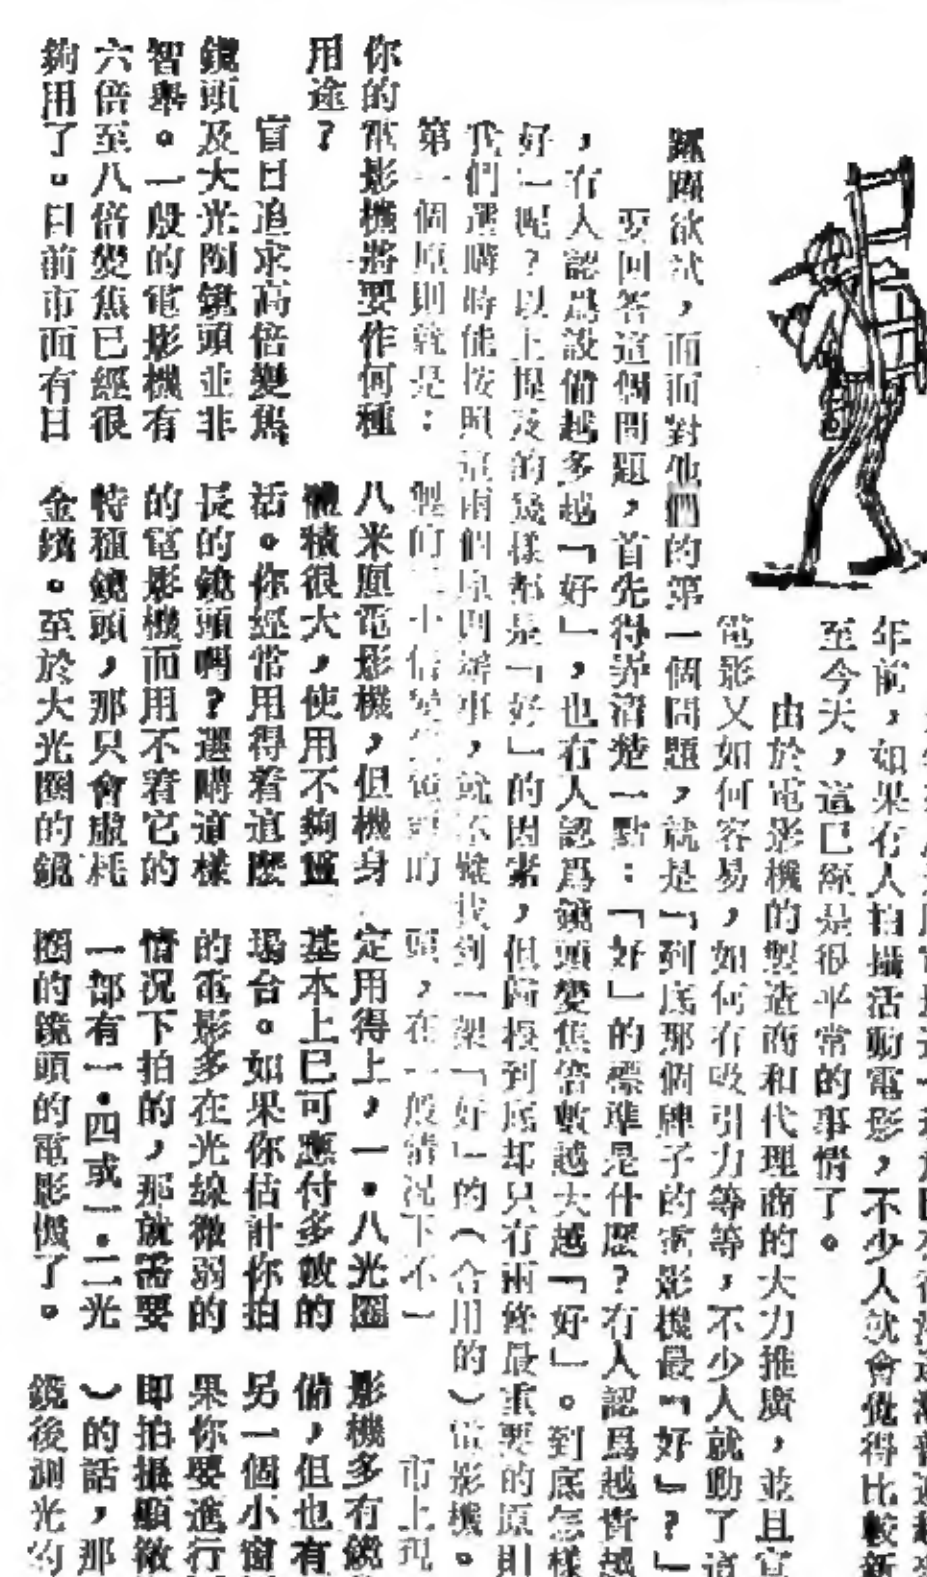 年前，如果有人拍攝活動電影，不少人就會覺得比較新
至今天，這已經是很平常的事情了。
由於電影機的製造商和代理商的大力推廣，並且宣
電影又如何容易，如何有吸引力等等，不少人就動了這
躍躍欲試，而面對他們的第一個問題，就是「到底那個牌子的電影機最「好」？」
要回答這個問題，首先得弄清楚一點：「好」的標準是什麼？有人認爲越貴越
，有人認爲設備越多越「好」，也有人認爲鏡頭變焦倍數越大越「好」。到底怎樣
好」呢？以上提及的幾樣都是「好」的因素，但歸根到底却只有兩條最重要的原則
我們選購時能按照這兩個原則辦事，就不難找到一架「好」的（合用的）電影機。
第一個原則就是：
你的電影機將要作何種
用途？
盲目追求高倍變焦
鏡頭及大光圈鏡頭並非
智舉。一般的電影機有
六倍至八倍變焦已經很
夠用了。目前市面有日
製的 十倍變
八米厘電影機，但機身
體積很大，使用不夠靈
活。你經常用得着這麼
長的鏡頭嗎？選購這樣
的電影機而用不着它的
特種鏡頭，那只會虛耗
金錢。至於大光圈的鏡
頭，在一般情況下不一
定用得上，一．八光圈
基本上已可應付多數的
場合。如果你估計你拍
的電影多在光線微弱的
情況下拍的，那就需要
一部有一．四或一．二光
圈的鏡頭的電影機了。
市上現
影機多有鏡
備，但也有
另一個小窗
果你要進行
即拍攝顯微
）的話，那
鏡後測光的